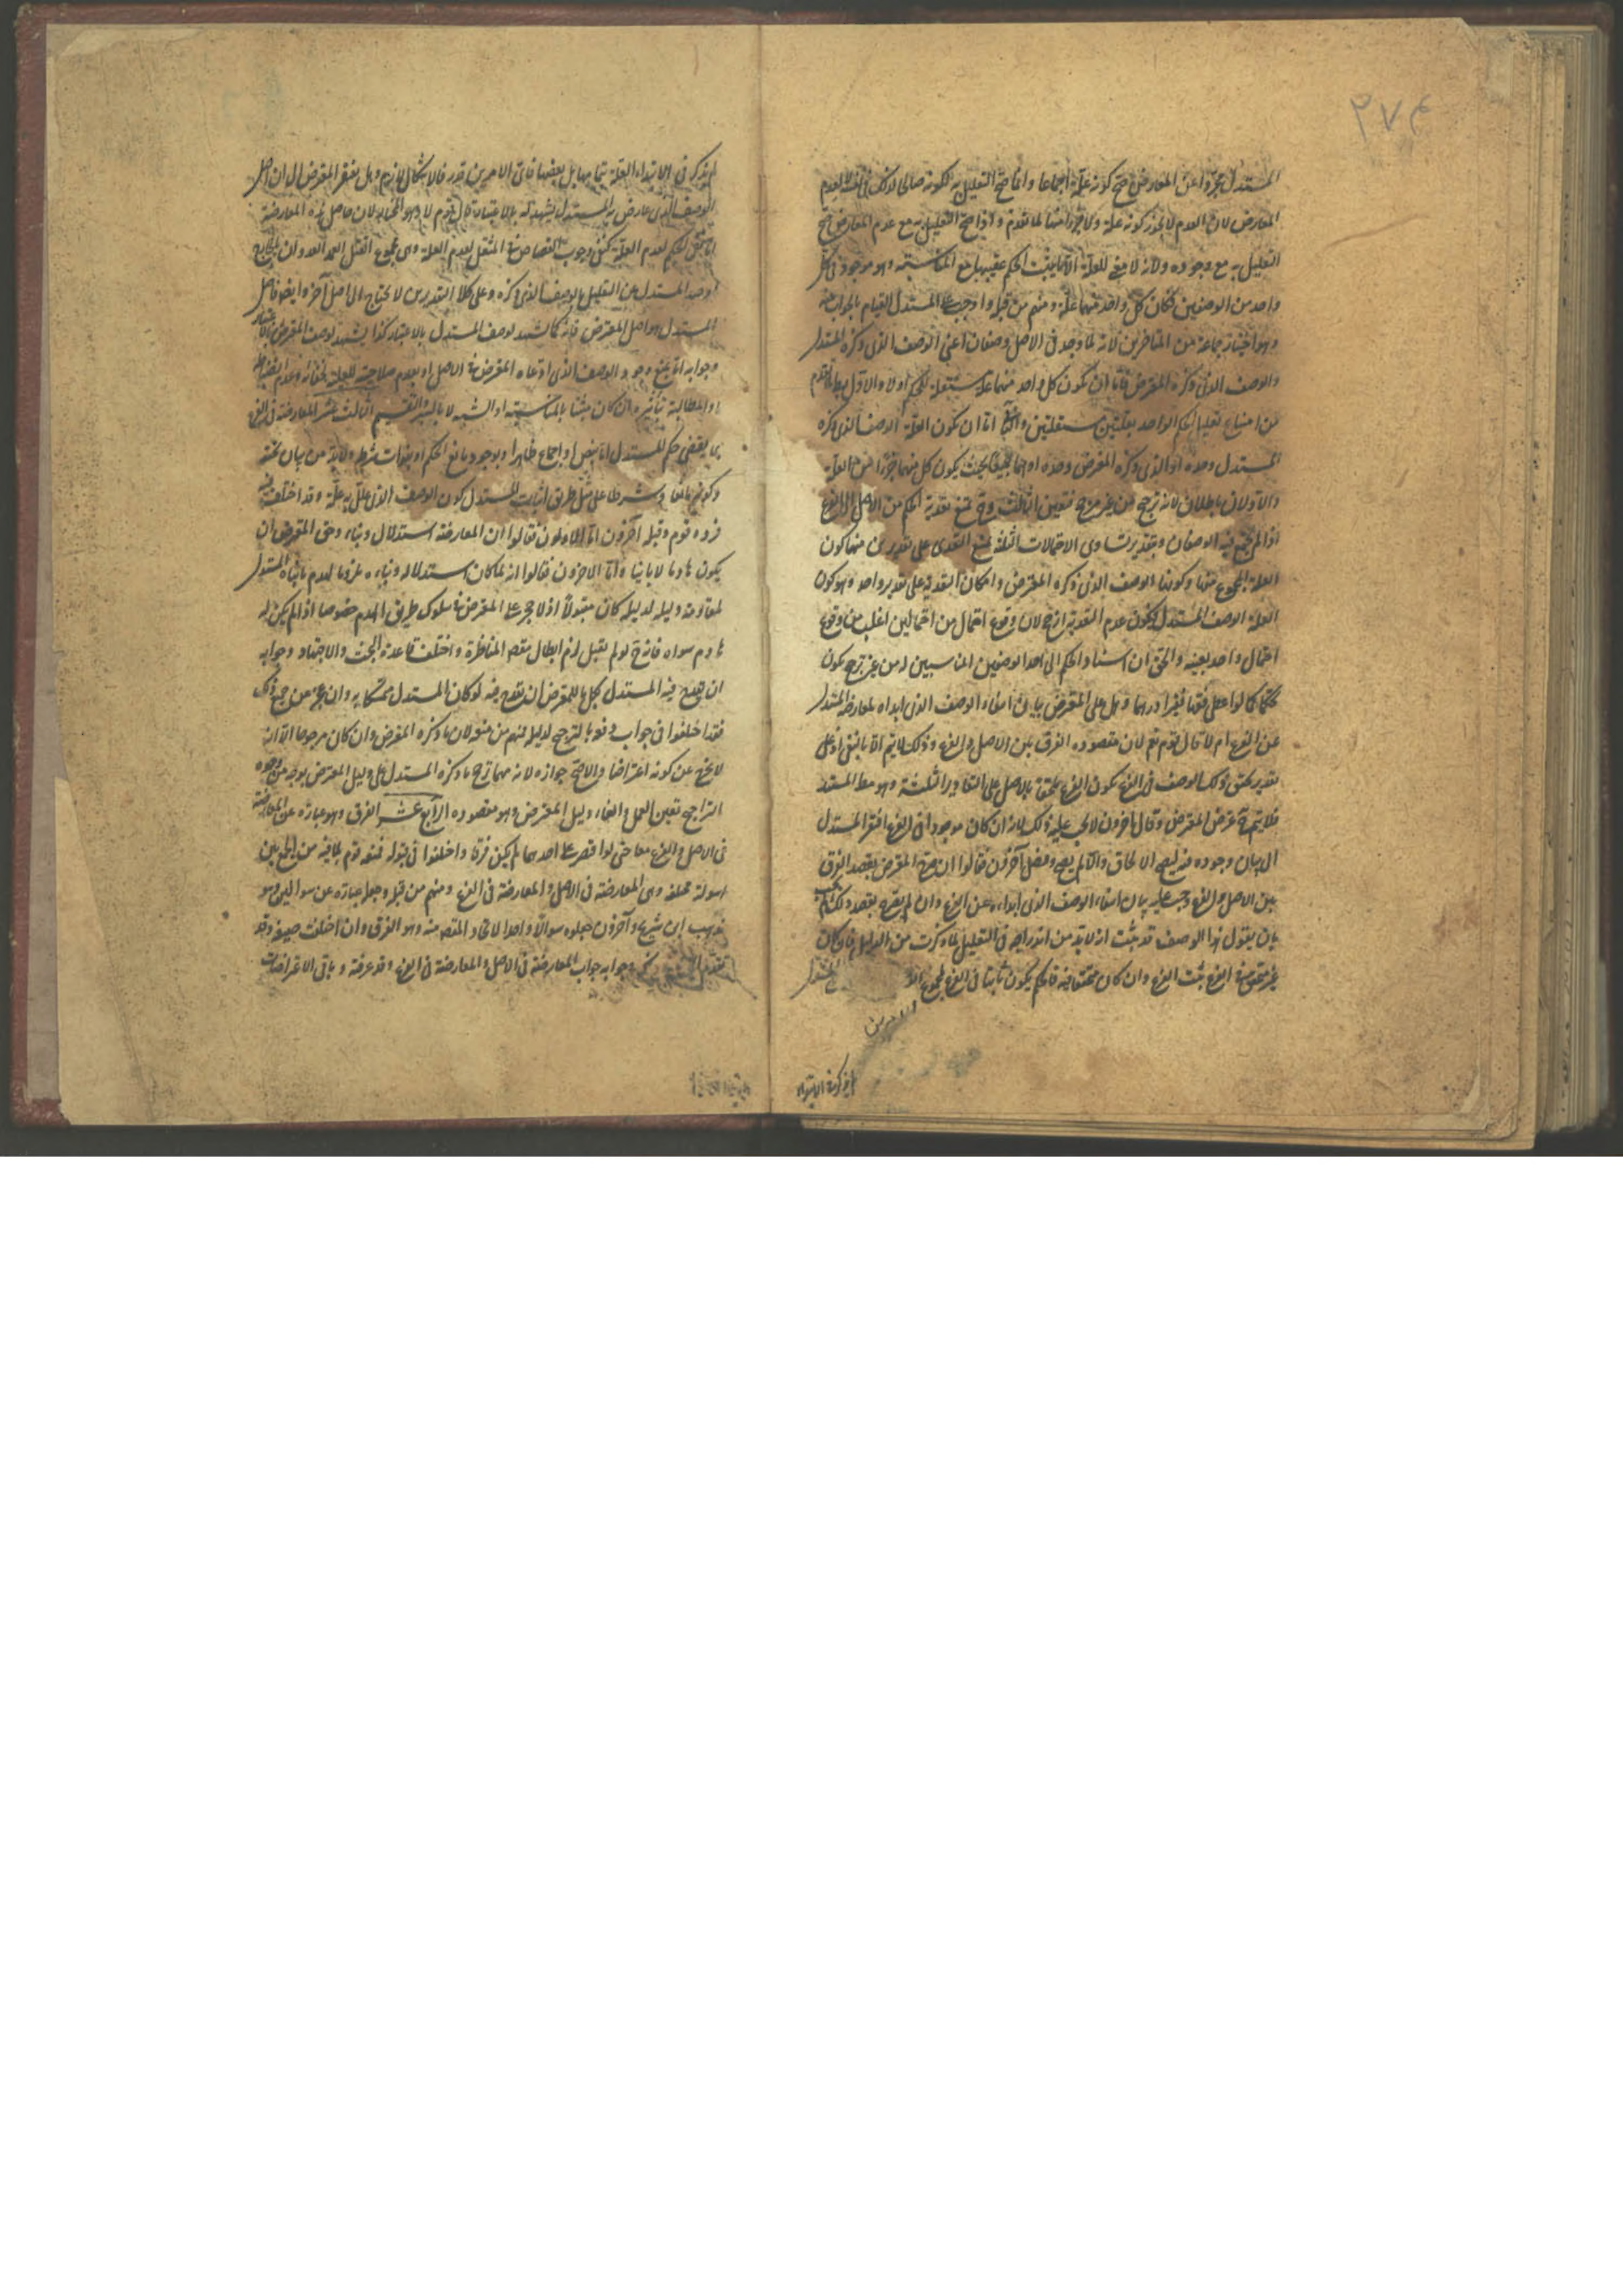 ٢٧٤
المستدل مجردا عن المعارض صح كونه علة اجماعا وانما صح التعليل به لكونه صالحا لذلك في نفسه لا لعدم
المعارض لان العدم لا يجوز كونه علة ولا جزءا منها لما تقدم واذا صح التعليل به مع عدم المعارض صح
التعليل به مع وجوده ولانه لا معنى للعلة الا ما يثبت الحكم عقيبه مع المناسبة وهو موجود في كل
واحد من الوصفين فكان كل واحد منهما علة ومنهم من قبله واوجب على المستدل القيام بالجواب عنه
وهو اختيار جماعة من المتاخرين لانه لما وجد في الاصل وصفان اعني الوصف الذي ذكره المستدل
والوصف الذي ذكره المعترض فاما ان يكون كل واحد منهما علة مستقلة للحكم او لا والاول باطل لما تقدم
من امتناع تعليل الحكم الواحد بعلتين مستقلتين والثاني اما ان يكون العلة الوصف الذي ذكره
المستدل وحده او الذي ذكره المعترض وحده او هما جميعا بحيث يكون كل منهما جزءا من العلة
والاولان باطلان لانه ترجيح من غير مرجح فتعين الثالث وح يمتنع تعدية الحكم من الاصل الى الفرع
اذا لم يجتمع فيه الوصفان وبتقدير تساوي الاحتمالات الثلثة يمتنع التعدي على تقديرين منها كون
العلة المجموع منهما وكونها الوصف الذي ذكره المعترض وامكان التعدية على تقدير واحد وهو كون
العلة الوصف المستدل فيكون عدم التعدية ارجح لان وقوع احتمال من احتمالين اغلب من وقوع
احتمال واحد بعينه والحق ان اسناد الحكم الى احد الوصفين المناسبين له من غير ترجيح يكون
تحكما كما لو اعطى فقيها فقيرا درهما وهل على المعترض بيان انتفاء الوصف الذي ابداه لمعارضة المستدل
عن الفرع ام لا قال قوم نعم لان مقصوده الفرق بين الاصل والفرع وذلك لا يتم الا بالنفي اذ على
تقدير تحقق ذلك الوصف في الفرع يكون الفرع ملحقا بالاصل على التقادير الثلثة وهو مطلوب المستدل
فلا يتم ح غرض المعترض وقال آخرون لا يجب عليه ذلك لانه ان كان موجودا في الفرع افتقر المستدل
الى بيان وجوده فيه ليصح الالحاق والا لم يصح وفصل آخرون فقالوا ان صرح المعترض بقصد الفرق
بين الاصل والفرع وجب عليه بيان انتفاء الوصف الذي ابداه عن الفرع وان لم يصرح بقصد ذلك لم يجب
بان يقول هذا الوصف قد ثبت انه لا بد من ادراجه في التعليل لما ذكرت من الدليل فان كان
غير متحقق في الفرع ثبت الفرق وان كان متحققا فيه فالحكم يكون ثابتا في الفرع لمجموع
الامرين
لم يذكر في الابتداء
لم يذكر في الابتداء العلة بتمامها بل بعضها فاي الامرين قدر فالاشكال لازم وهل يفتقر المعترض الى ان اصل
الوصف الذي عارض به المستدل يشهد له بالاعتبار قال قوم لا وهو الحق لان حاصل هذه المعارضة
اما نفي الحكم لعدم العلة كنفي وجوب القصاص في المثقل لعدم العلة وهي مجموع القتل العمد العدوان
او صد المستدل عن التعليل بالوصف الذي ذكره وعلى كلا التقديرين لا يحتاج الى اصل آخر وايضا فاصل
المستدل هو اصل المعترض فانه كما شهد لوصف المستدل بالاعتبار كذا يشهد لوصف المعترض بالاعتبار
وجوابه اما بمنع وجود الوصف الذي ادعاه المعترض في الاصل او بعدم صلاحيته للعلية لخفائه وعدم انضباطه
او المطالبة بتاثيره ان كان مثبتا بالمناسبة او الشبه لا بالسبر والتقسيم الثالث عشر المعارضة في الفرع
بما يقتضي حكم المستدل اما بنص او اجماع ظاهرا وبوجود مانع الحكم او بفوات شرط ولا بد من بيان تحققه
وكونه مانعا او شرطا على مثل طريق اثبات المستدل كون الوصف الذي علل به علة وقد اختلف فيه
فرده قوم وقبله آخرون اما الاولون فقالوا ان المعارضة استدلال وبناء وحق المعترض ان
يكون هادما لا بانيا واما الآخرون فقالوا انه لما كان استدلاله وبناءه مما يلزمه هدم ما بناه المستدل
لمقاومة دليله لدليله كان مقبولا اذ لا حجر على المعترض في سلوك طريق الهدم خصوصا اذا لم يكن له
هادم سواه فانه ح لو لم يقبل لزم ابطال مقصد المناظرة واختلت قاعدة البحث والاجتهاد وجوابه
ان يقدح فيه المستدل بكل ما للمعترض ان يقدح فيه لو كان المستدل متمسكا به وان عجز عن جميع ذلك
فقد اختلفوا في جواب دفعه بالترجيح لدليله فمنهم من منعه لان ما ذكره المعترض وان كان مرجوحا الا انه
لا يخرج عن كونه اعتراضا والاصح جوازه لانه مهما ترجح ما ذكره المستدل على دليل المعترض بوجه من وجوه
التراجيح تعين العمل والغاء دليل المعترض وهو مقصوده الرابع عشر الفرق وهو عبارة عن المعارضة
في الاصل والفرع معا حتى لو اقتصر على احدهما لم يكن فرقا واختلفوا في قبوله فمنعه قوم لما فيه من الجمع بين
اسولة مختلفة وهي المعارضة في الاصل والمعارضة في الفرع ومنهم من قبله وجعله عبارة عن سوالين وهو
مذهب ابن شريح وآخرون جعلوه سوالا واحدا لاتحاد المقصود منه وهو الفرق وان اختلفت صيغه وقد
تقدم وجوابه جواب المعارضة في الاصل والمعارضة في الفرع وقد عرفته وباقي الاعتراضات